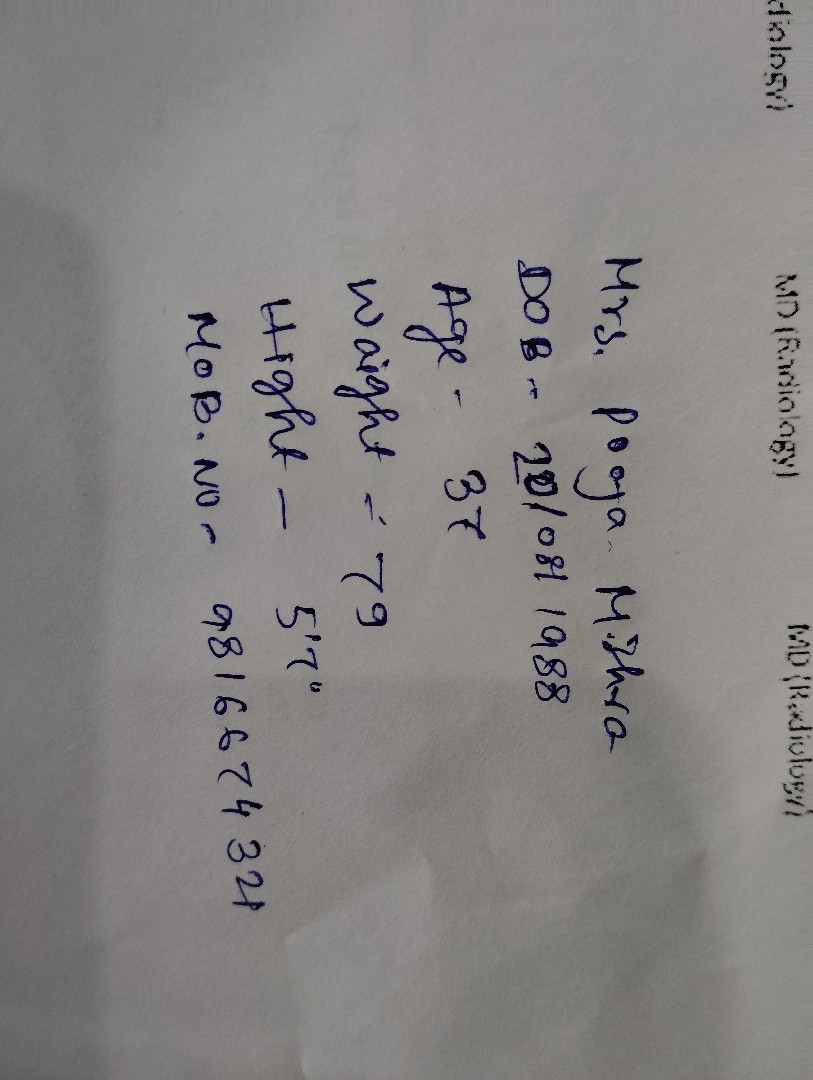 diology) MD (Radiology) MD (Radiology)
Mrs. Pooja Mishra
DOB - /08/1988
Age - 37
Waight - 79
Hight - 5'7"
MOB. NO -